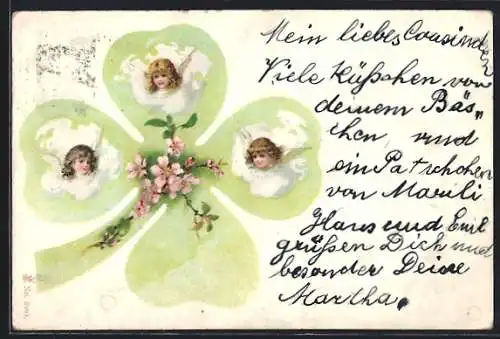 Mein liebes Cousinchen
Viele Küßchen von
deinem Bäs„
chen, und
ein Patschchen
von Maruli
Hans und Emil
grüßen Dich und
besonder Deine
Martha.